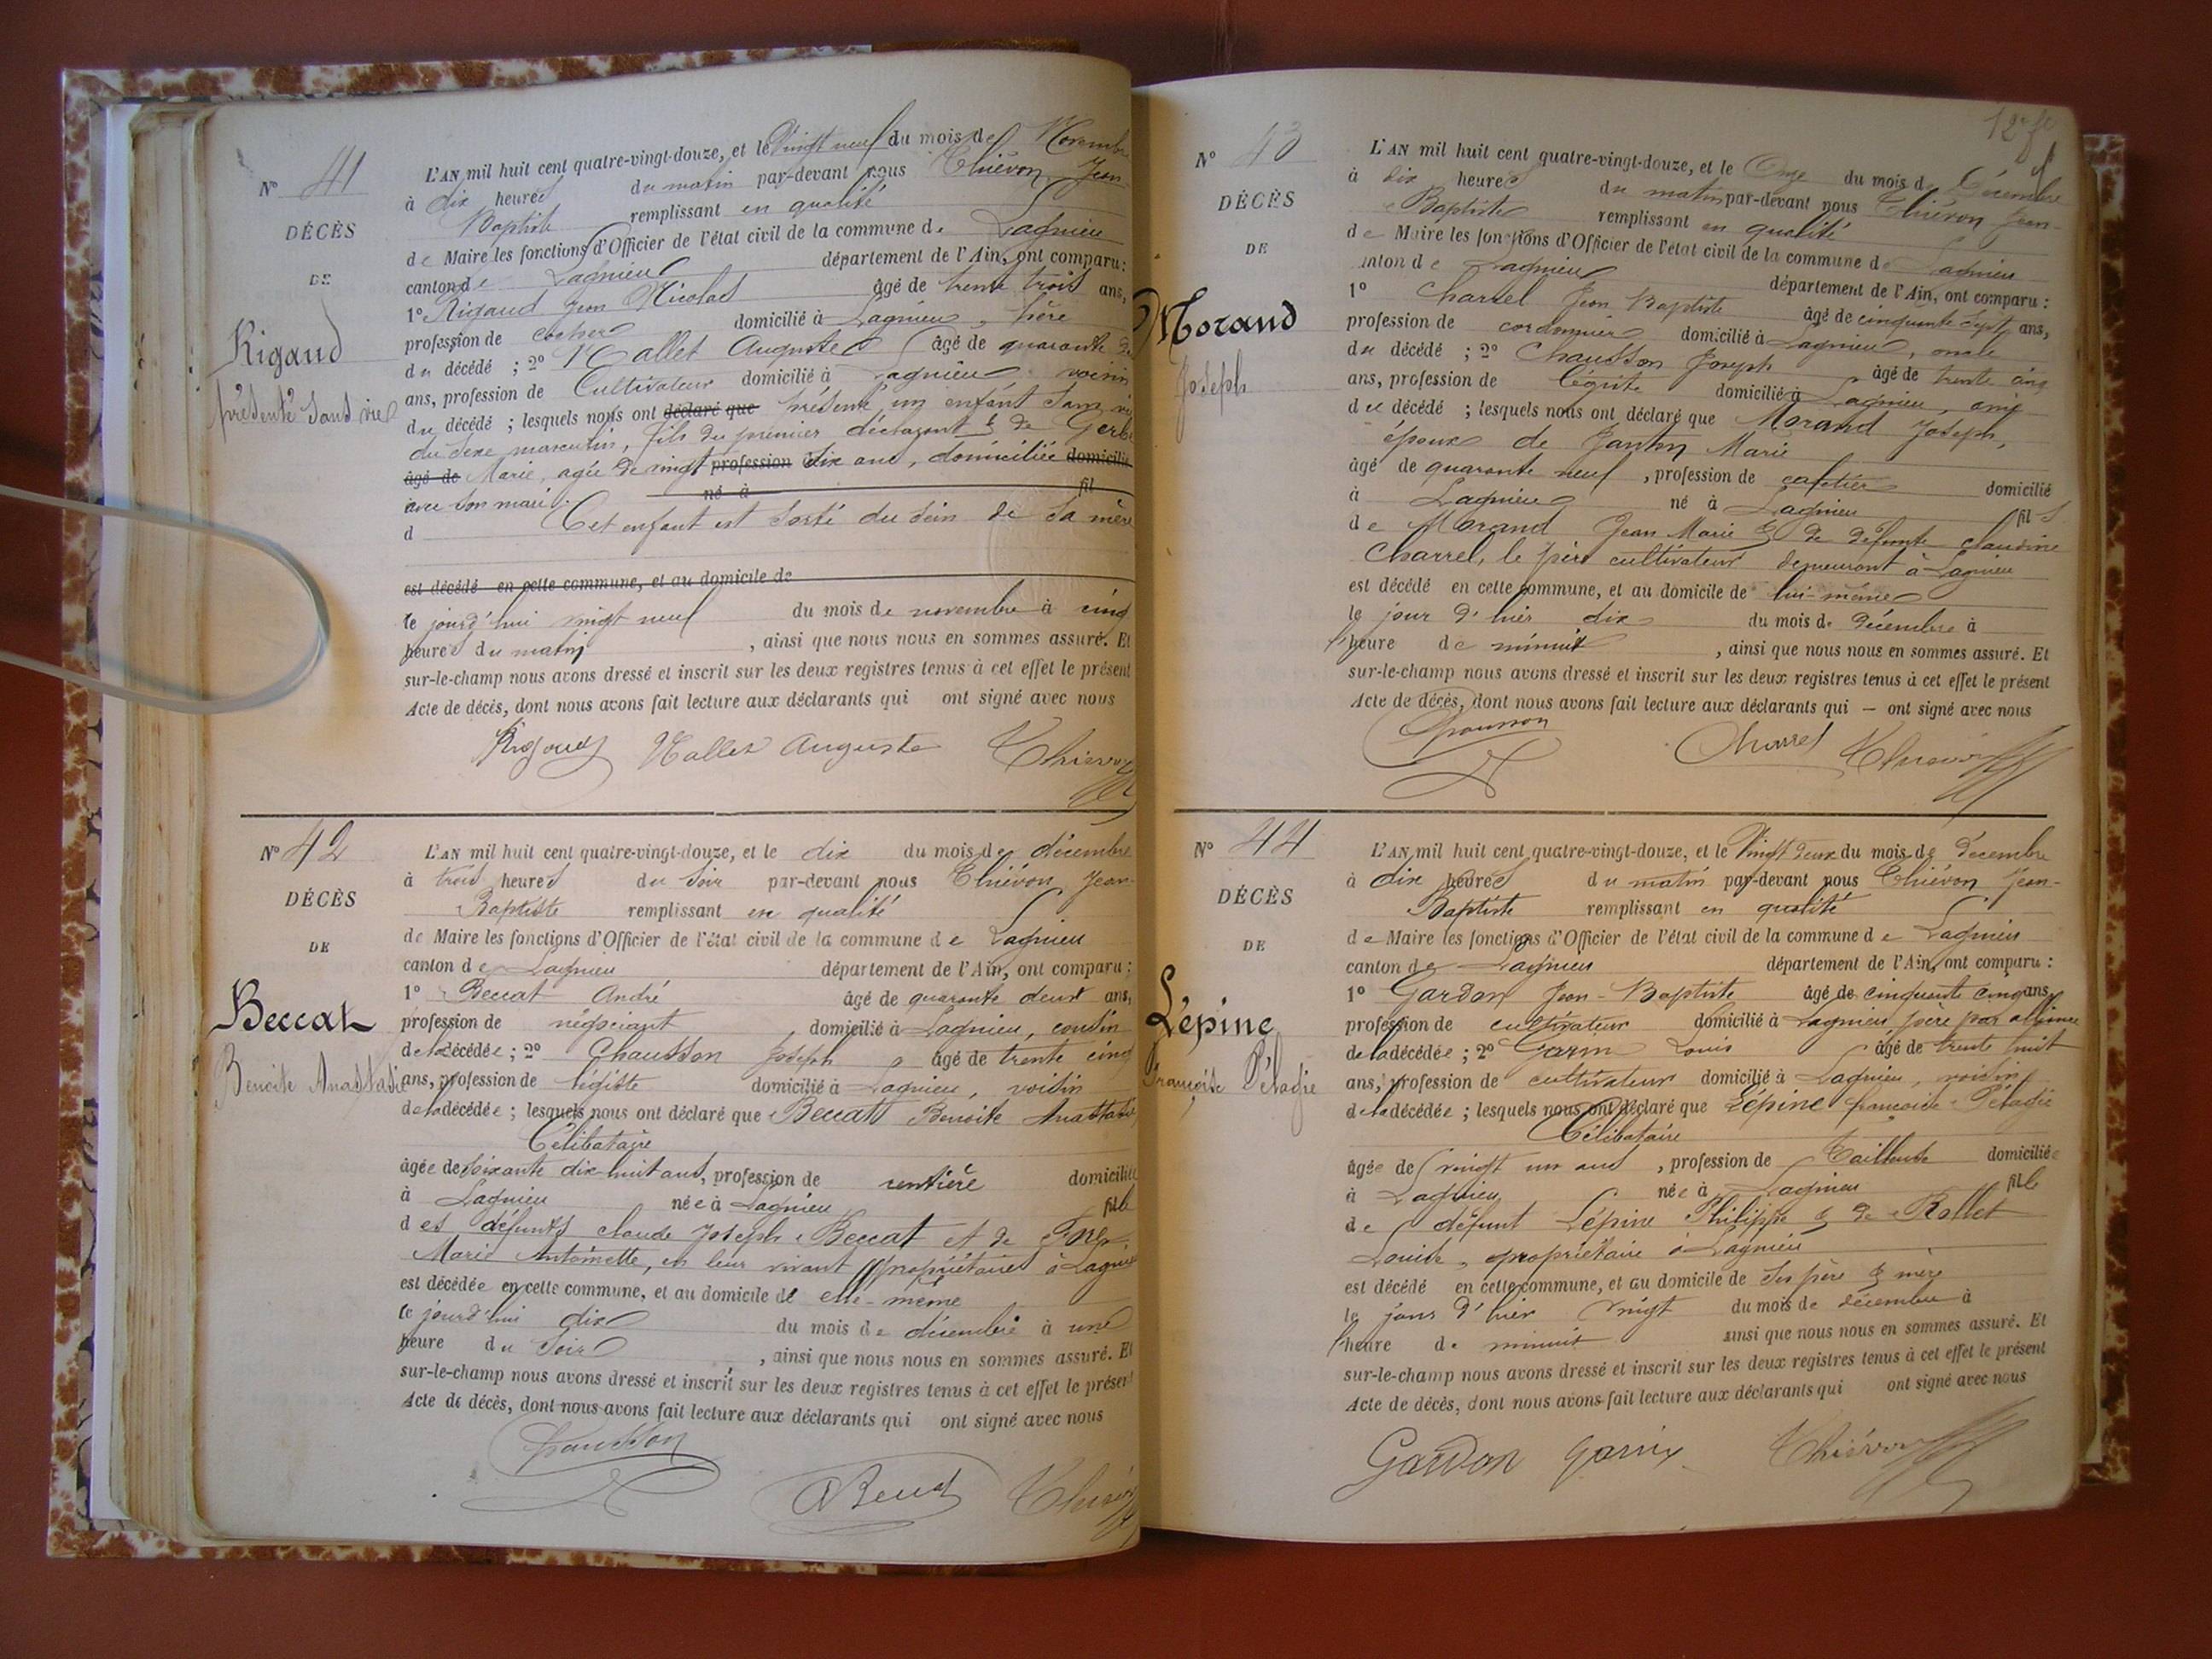 N° 41
DÉCÈS
DE
Rigaud
présenté sans vie
L'AN mil huit cent quatre-vingt-douze, et le Vingt neuf du mois de Novembre
à dix heures du matin par-devant nous Thiévon Jean-
Baptiste remplissant en qualité
de Maire les fonctions d'Officier de l'état civil de la commune de Lagnieu
canton de Lagnieu département de l'Ain, ont comparu :
1° Rigaud Jean Nicolas âgé de trente trois ans,
profession de cocher domicilié à Lagnieu, père
du décédé ; 2° Nallet Auguste âgé de quarante
ans, profession de Cultivateur domicilié à Lagnieu voisin
du décédé ; lesquels nous ont déclaré que présenté un enfant sans vie
du sexe masculin, fils du premier déclarant & de
âgé de Marie, agée de vingt profession six ans, domiciliée domicilié
avec son mari. né à fil
d Cet enfant est sorti du sein de sa mère
est décédé en cette commune, et au domicile de
le jourd'hui vingt neuf du mois de novembre à cinq
heures du matin, ainsi que nous nous en sommes assuré. Et
sur-le-champ nous avons dressé et inscrit sur les deux registres tenus à cet effet le présent
Acte de décès, dont nous avons fait lecture aux déclarants qui ont signé avec nous
Rigaud Nallet Auguste Thiévon
N° 42
DÉCÈS
DE
Beccat
Benoite Anastasie
L'AN mil huit cent quatre-vingt-douze, et le dix du mois de décembre
à trois heures du soir par-devant nous Thiévon Jean-
Baptiste remplissant en qualité
de Maire les fonctions d'Officier de l'état civil de la commune de Lagnieu
canton de Lagnieu département de l'Ain, ont comparu :
1° Beccat André âgé de quarante deux ans,
profession de négociant, domicilié à Lagnieu, cousin
de la décédée ; 2° Chausson Joseph âgé de trente cinq
ans, profession de légiste domicilié à Lagnieu, voisin
de la décédée ; lesquels nous ont déclaré que Beccat Benoite Anastasie
Célibataire
âgée de soixante dix-huit ans, profession de rentière domiciliée
à Lagnieu née à Lagnieu fille
des défunts claude Joseph Beccat et de
Marie Antoinette, en leur vivant propriétaires à Lagnieu
est décédée en cette commune, et au domicile de elle-même
le jourd'hui dix du mois de décembre à une
heure du soir, ainsi que nous nous en sommes assuré. Et
sur-le-champ nous avons dressé et inscrit sur les deux registres tenus à cet effet le présent
Acte de décès, dont nous avons fait lecture aux déclarants qui ont signé avec nous
Chausson
A Beccat Thiévon
N° 43
DÉCÈS
DE
Morand
Joseph
L'AN mil huit cent quatre-vingt-douze, et le Onze du mois de Décembre
à dix heures du matin par-devant nous Thiévon Jean-
Baptiste remplissant en qualité
de Maire les fonctions d'Officier de l'état civil de la commune de Lagnieu
canton de Lagnieu département de l'Ain, ont comparu :
1° Charrel Jean Baptiste âgé de cinquante sept ans,
profession de cordonnier domicilié à Lagnieu, oncle
du décédé ; 2° Chausson Joseph âgé de trente cinq
ans, profession de légiste domicilié à Lagnieu, ami
du décédé ; lesquels nous ont déclaré que Morand Joseph,
époux de Marie
âgé de quarante neuf, profession de cafetier domicilié
à Lagnieu né à Lagnieu fils
de Morand Jean Marie & de défunte claudine
Charrel, le père cultivateur demeurant à Lagnieu
est décédé en cette commune, et au domicile de lui-même
le jour d'hier dix du mois de décembre à
l'heure de minuit, ainsi que nous nous en sommes assuré. Et
sur-le-champ nous avons dressé et inscrit sur les deux registres tenus à cet effet le présent
Acte de décès, dont nous avons fait lecture aux déclarants qui — ont signé avec nous
Chausson Charrel Thiévon
N° 44
DÉCÈS
DE
Lépine
Françoise Pélagie
L'AN mil huit cent quatre-vingt-douze, et le Vingt deux du mois de décembre
à dix heures du matin par-devant nous Thiévon Jean-
Baptiste remplissant en qualité
de Maire les fonctions d'Officier de l'état civil de la commune de Lagnieu
canton de Lagnieu département de l'Ain, ont comparu :
1° Gardon Jean-Baptiste âgé de cinquante cinq ans,
profession de cultivateur domicilié à Lagnieu, père par alliance
de la décédée ; 2° Garin Louis âgé de trente huit
ans, profession de cultivateur domicilié à Lagnieu, voisin
de la décédée ; lesquels nous ont déclaré que Lépine françoise Pélagie
Célibataire
âgée de vingt un ans, profession de Tailleuse domiciliée
à Lagnieu née à Lagnieu fille
de défunt Lépine Philippe & de Rollet
Louise, propriétaire à Lagnieu
est décédé en cette commune, et au domicile de ses père & mère
le jour d'hier vingt du mois de décembre à
l'heure de minuit ainsi que nous nous en sommes assuré. Et
sur-le-champ nous avons dressé et inscrit sur les deux registres tenus à cet effet le présent
Acte de décès, dont nous avons fait lecture aux déclarants qui ont signé avec nous
Gardon Garin Thiévon